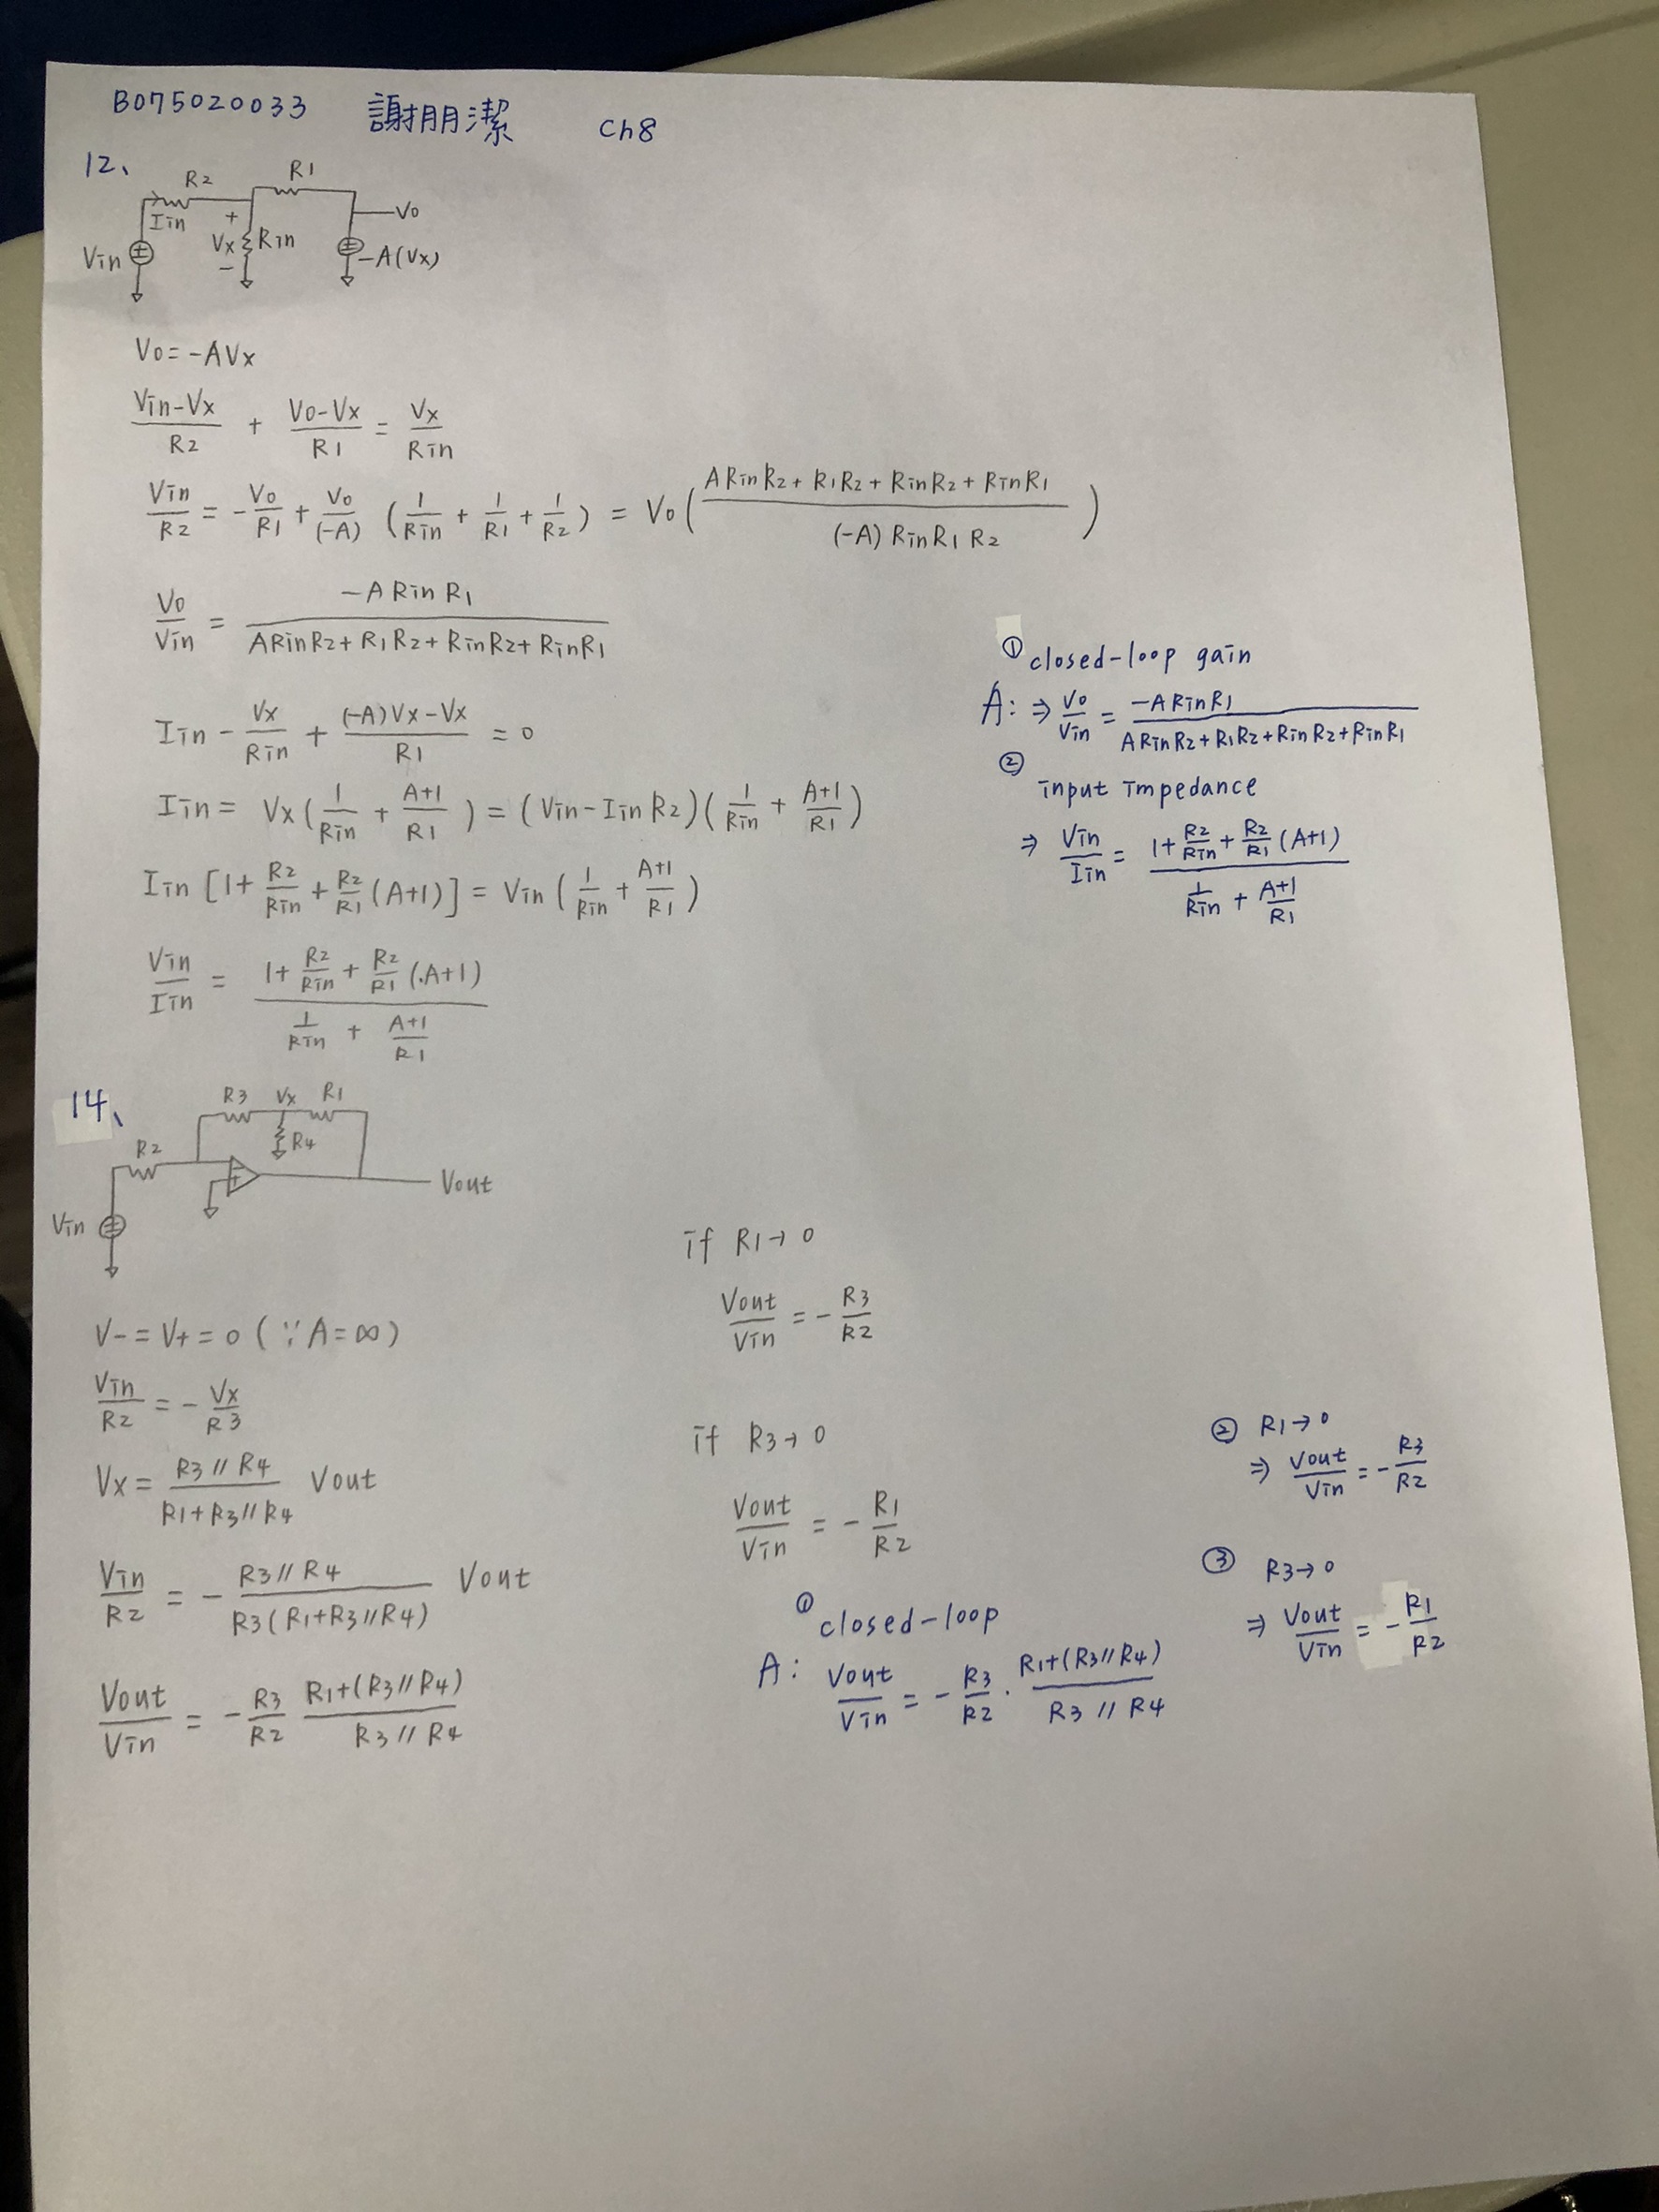 B075020033 謝朋潔 Ch8
12、
R2 R1
Iin + Vo
Vin Vx Rin -A(Vx)
-
Vo=-AVx
(Vin-Vx)/R2 + (Vo-Vx)/R1 = Vx/Rin
Vin/R2 = -Vo/R1 + Vo/(-A) (1/Rin + 1/R1 + 1/R2) = Vo((ARinR2+R1R2+RinR2+RinR1)/((-A)RinR1R2))
Vo/Vin = (-ARinR1)/(ARinR2+R1R2+RinR2+RinR1)
Iin - Vx/Rin + ((-A)Vx-Vx)/R1 = 0
Iin = Vx(1/Rin + (A+1)/R1) = (Vin-IinR2)(1/Rin + (A+1)/R1)
Iin[1+R2/Rin+R2/R1(A+1)] = Vin(1/Rin + (A+1)/R1)
Vin/Iin = (1+R2/Rin+R2/R1(A+1))/(1/Rin + (A+1)/R1)
① closed-loop gain
A: ⇒ Vo/Vin = (-ARinR1)/(ARinR2+R1R2+RinR2+RinR1)
②
input impedance
⇒ Vin/Iin = (1+R2/Rin+R2/R1(A+1))/(1/Rin + (A+1)/R1)
14、
R3 Vx R1
R2 R4
- + Vout
Vin
V-=V+=0(∵A=∞)
Vin/R2 = -Vx/R3
Vx = (R3//R4)/(R1+R3//R4) Vout
Vin/R2 = -(R3//R4)/(R3(R1+R3//R4)) Vout
Vout/Vin = -R3/R2 (R1+(R3//R4))/(R3//R4)
if R1→0
Vout/Vin = -R3/R2
if R3→0
Vout/Vin = -R1/R2
① closed-loop
A: Vout/Vin = -R3/R2 · (R1+(R3//R4))/(R3//R4)
② R1→0
⇒ Vout/Vin = -R3/R2
③ R3→0
⇒ Vout/Vin = -R1/R2